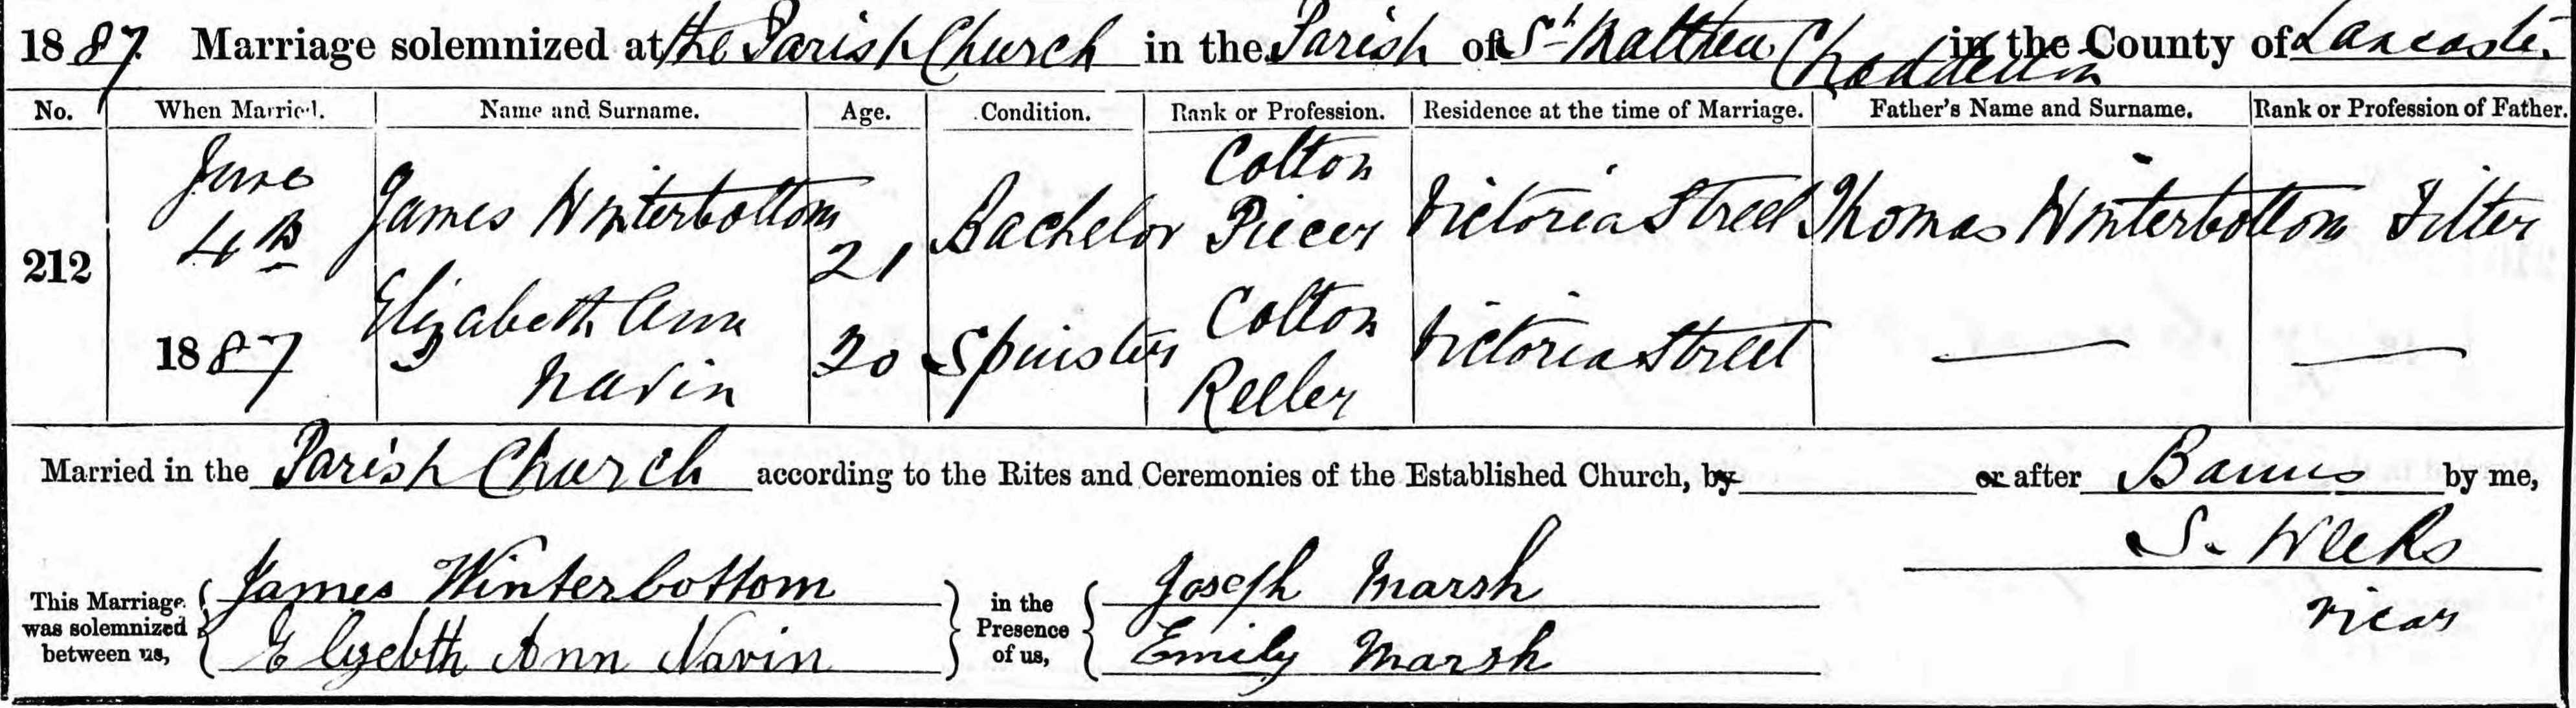 1887 Marriage solemnized at the Parish Church in the Parish of St Matthew Chadderton in the County of Lancaster
No. When Married. Name and Surname. Age. Condition. Rank or Profession. Residence at the time of Marriage. Father's Name and Surname. Rank or Profession of Father.
212 June 4th 1887 James Winterbottom 21 Bachelor Cotton Piecer Victoria Street Thomas Winterbottom Fitter
Elizabeth Ann Navin 20 Spinster Cotton Reeler Victoria Street — —
Married in the Parish Church according to the Rites and Ceremonies of the Established Church, by or after Banns by me,
This Marriage was solemnized between us, James Winterbottom in the Presence of us, Joseph Marsh S. Weeks
Elizebth Ann Navin Emily Marsh Vicar